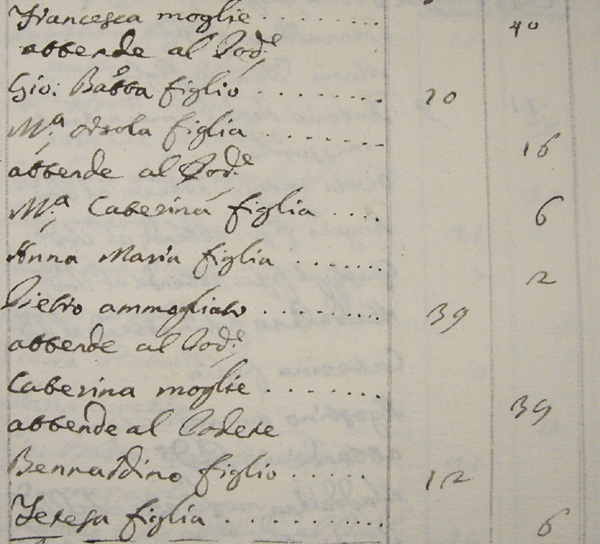 Francesca moglie . . . . . . . . 40
attende al Pod.e
Gio: Batta figlio . . . . . . . . 10
M.a Orsola figlia . . . . . . . . 16
attende al Pod.e
M.a Caterina figlia . . . . 6
Anna Maria figlia . . . . . . . 2
Pietro ammogliato . . . . . . . . . 39
attende al Pod.e
Caterina moglie . . . . . . . . 39
attende al Podere
Bernardino figlio . . . . . . 12
Teresa figlia . . . . . . . . . . 6